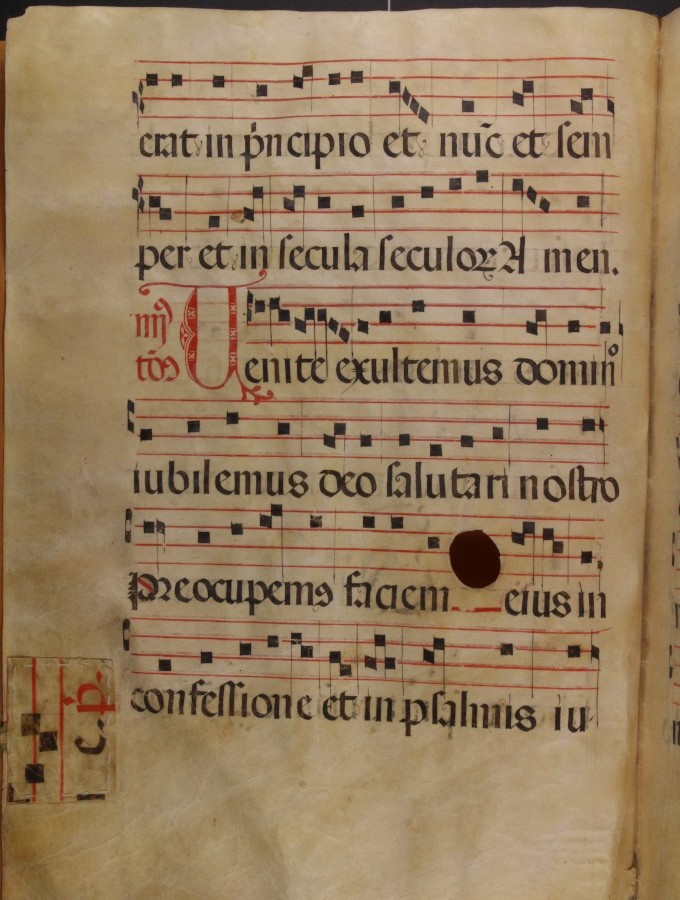 erat in p̃ncipio et nũc et sem
per et in secula seculoꝝ A men.
iiij⁹
tõꝰ
Uenite exultemus domin⁰
iubilemus deo salutari nostro
Preocupemꝰ faciem eius in
confessione et in psalmis iu
c.p.